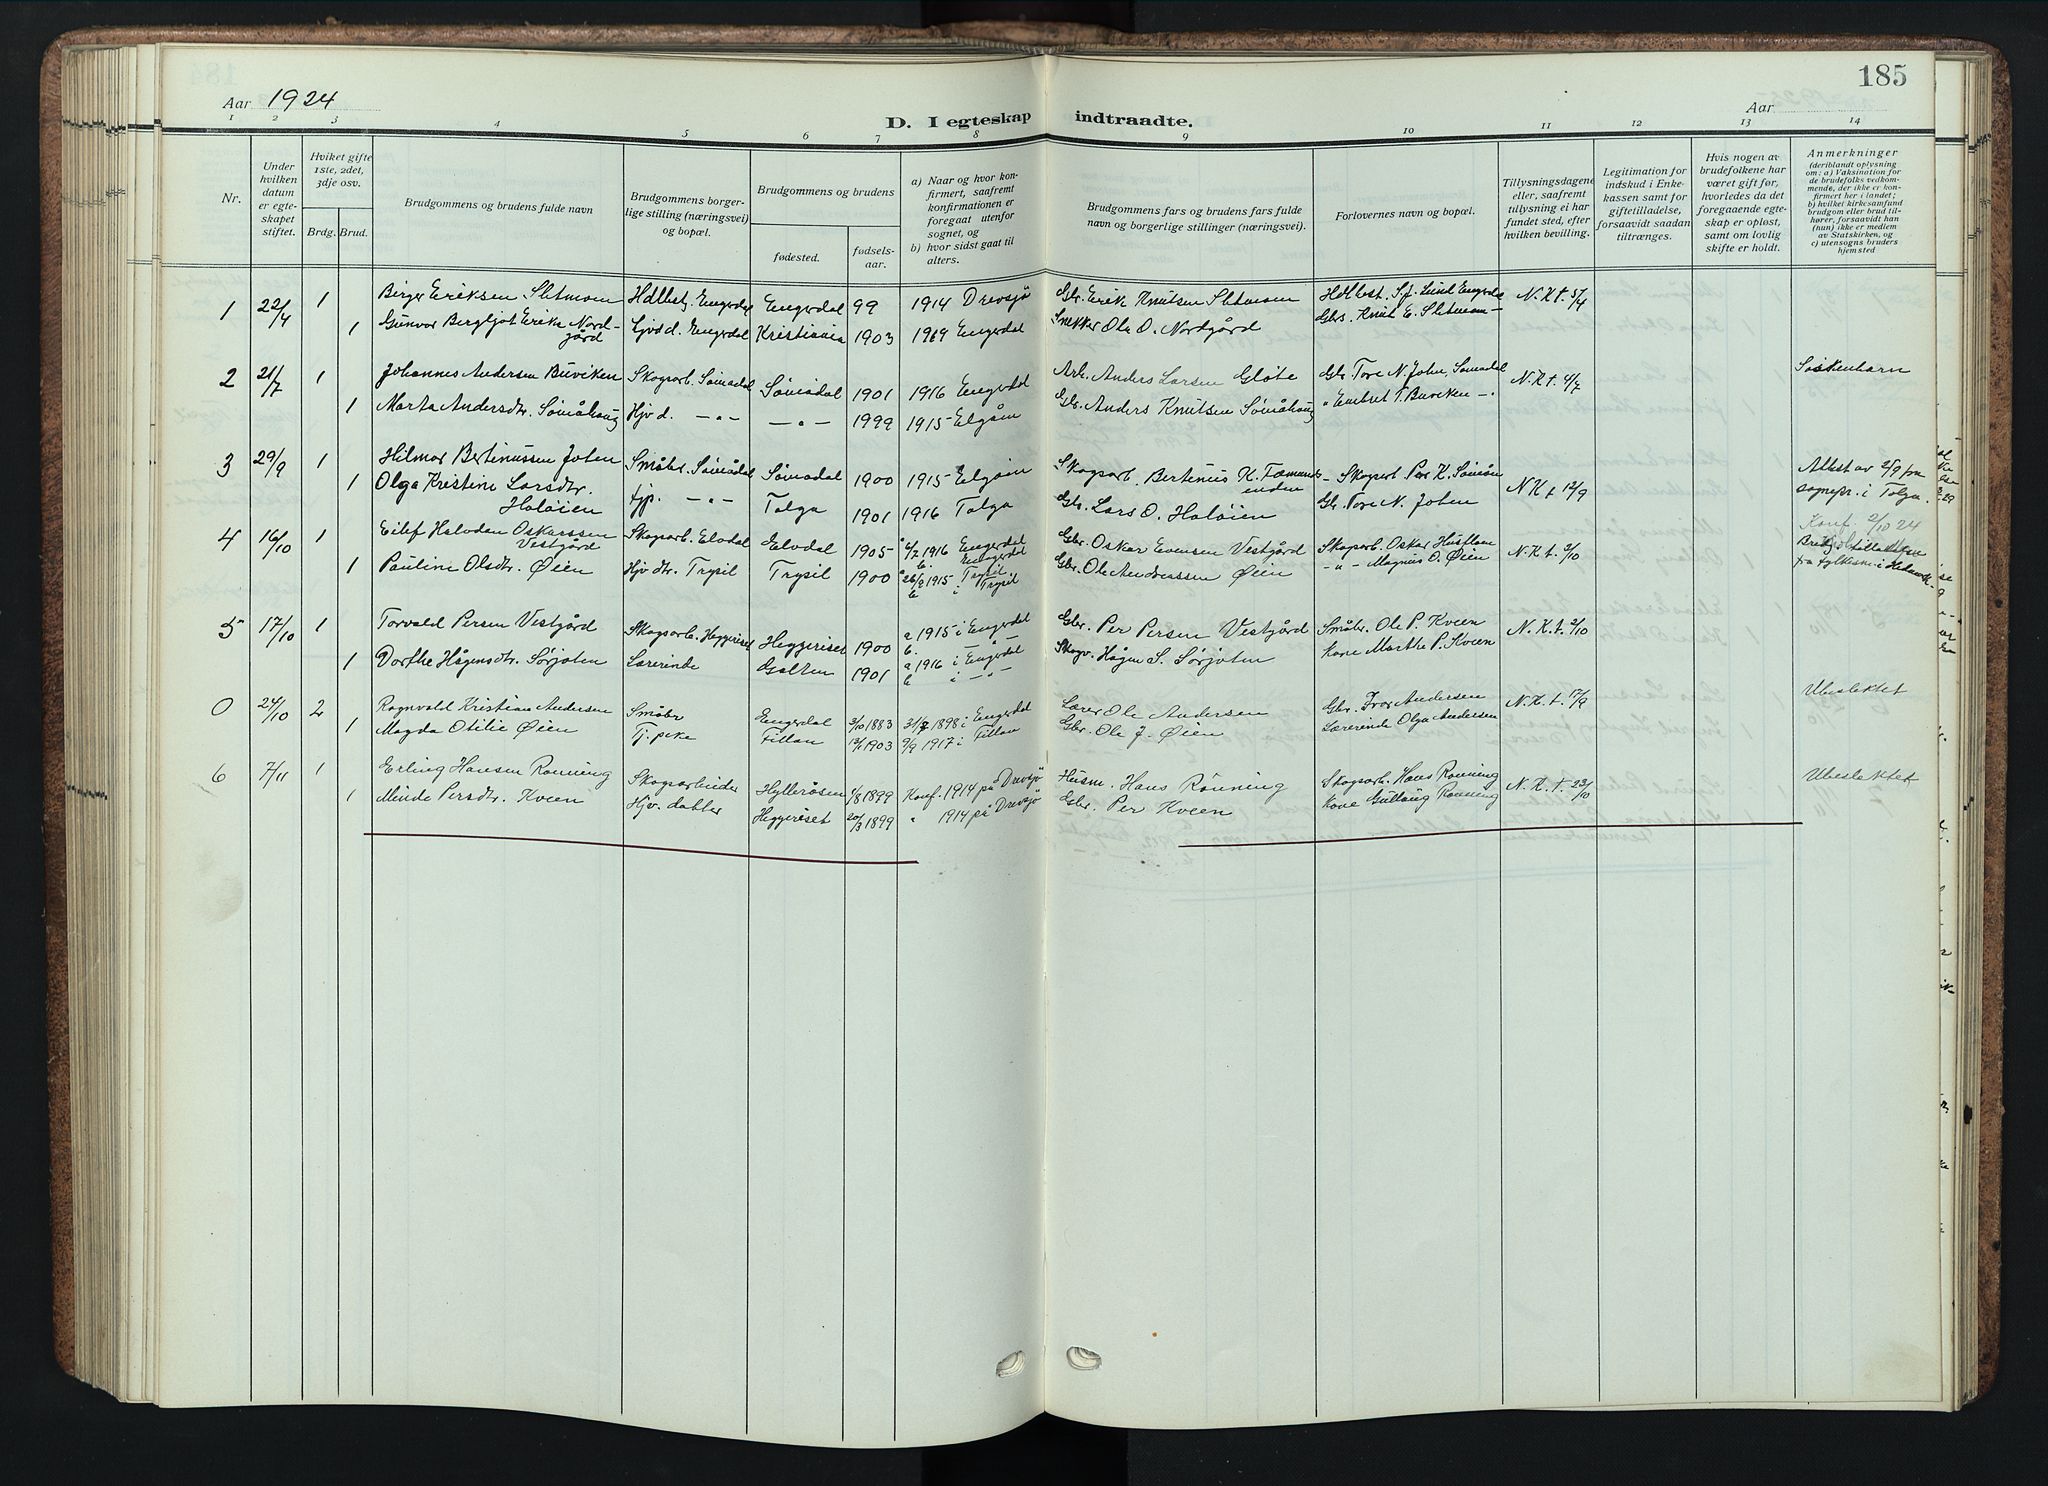 185
Aar 1924
Aar
D. I egteskap indtraadte.
1 2 3 4 5 6 7 8 9 10 11 12 13 14
Nr.
Under hvilken datum er egteskapet stiftet.
Hviket gifte 1ste, 2det, 3dje osv.
Brdg. Brud.
Brudgommens og brudens fulde navn
Brudgommens borgerlige stilling (næringsvei) og bopæl.
Brudgommens og brudens
fødested.
fødselsaar.
a) Naar og hvor konfirmert, saafremt konfirmationen er foregaat utenfor sognet, og
b) hvor sidst gaat til alters.
Brudgommens fars og brudens fars fulde navn og borgerlige stillinger (næringsvei).
Forlovernes navn og bopæl.
Tillysningsdagene eller, saafremt tillysning ei har fundet sted, efter hvilken bevilling.
Legitimation for indskud i Enkekassen samt for giftetilladelse, forsaavidt saadan tiltrænges.
Hvis nogen av brudefolkene har været gift før, hvorledes da det foregaaende egteskap er opløst, samt om lovlig skifte er holdt.
Anmerkninger
(deriblandt oplysning om: a) Vaksination for de brudefolks vedkommende, der ikke er konfirmert her i landet; b) hvilket kirkesamfund brudgom eller brud tilhører, forsaavidt han (hun) ikke er medlem av Statskirken, og c) utensogns bruders hjemsted
1 22/4 1 Birger Eriksen Sletmoen Hdlbestj. Engerdal Engerdal 99 1914 Drevsjø Gbr. Erik Knutsen Sletmoen Hdlbest. S. J. Lund Engerdal N. K. t.
1 Gunvor Bergljot Erika Nordgård Hjvd d. Engerdal Kristiania 1903 1919 Engerdal Snekker Ole O. Nordgård Gbrs. Knut E. Sletmoen
2 21/7 1 Johannes Andersen Buviken Skogsarb. Sømådal Sømådal 1901 1916 Engerdal Arb. Anders Larsen Gløte Gbr. Tore N. Joten, Sømådal N. K. t. 4/7 Søskenbarn
1 Marta Andersdtr. Sømåhaug Hjv d. — " — — " — 1999 1915 Elgåm Gbr. Anders Knutsen Sømåhaug " Embret T. Buviken — "
3 29/9 1 Hilmar Bertinussen Joten Småbr. Sømådal Sømådal 1900 1915 Elgåm Skogsarb. Bertinus K. Fæmundsenden Skogsarb Per K. Sømåen N K t 12/9 Attest av 2/9 fra sognepr. i Tolga.
1 Olga Kristine Larsdtr. Haløien tjp. — " — Tolga 1901 1916 Tolga Gbr. Lars O. Haløien Gbr. Tore N. Joten
4 16/10 1 Eilef Halvdan Oskarssen Vestgård Skogsarb. Elvdal Elvdal 1905 a 4/7 1916 Engerdal b. Engerdal Gbr. Oskar Evensen Vestgård Skogsarb. Oskar Hustloen N. K. t. 3/10 Konf. 2/10 24
1 Pauline Olsdtr. Øien Hjv dtr. Trysil Trysil 1900 a 26/9 1915 i Trysil b i Trysil Gbr. Ole Andreassen Øien — " — Magnus O. Øien fra fylkesm. i Hedmark.
5 17/10 1 Torvald Persen Vestgård Skogsarb. Heggeriset Heggeriset 1900 a 1915 i Engerdal b. — " — Gbr. Per Persen Vestgård Småbr. Ole P. Kveen N. K. t. 2/10
1 Dorthe Hågensdtr. Sørjoten Lærerinde Galten 1901 a 1916 i Engerdal b i — " — Skogv. Hågen S. Sørjoten Kone Marthe P. Kveen
0 24/10 2 Ragnvald Kristian Andersen Småbr Engerdal 3/10 1883 1898 i Engerdal Lærer Ole Andersen Gbr. Ivar Andersen N. K. t. 17/9 Ubeslektet
1 Magda Otilie Øien Tj. pike Fillan 13/1 1903 9/9 1917 i Fillan Gbr. Ole J. Øien Lærerinde Olga Andersen
6 7/11 1 Erling Hansen Rønning Skogsarbeider Hyllerøsen 1/8 1899 Konf. 1914 på Drevsjø Husm. Hans Rønning Skogsarb. Hans Rønning N. K. T. 23/10 Ubeslektet
1 Minda Persdtr. Kveen Hjv. datter Heggeriset 20/3 1899 " 1914 på Drevsjø Gbr. Per Kveen Kone Gullaug Rønning